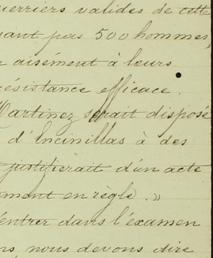 guerriers valides de cette
yant pas 500 hommes,
aisément à leurs
résistance efficace.
Martinez serait disposé
d'Encinillas à des
justifierait d'un acte
ment en règle. »
entrer dans l'examen
ns nous devons dire